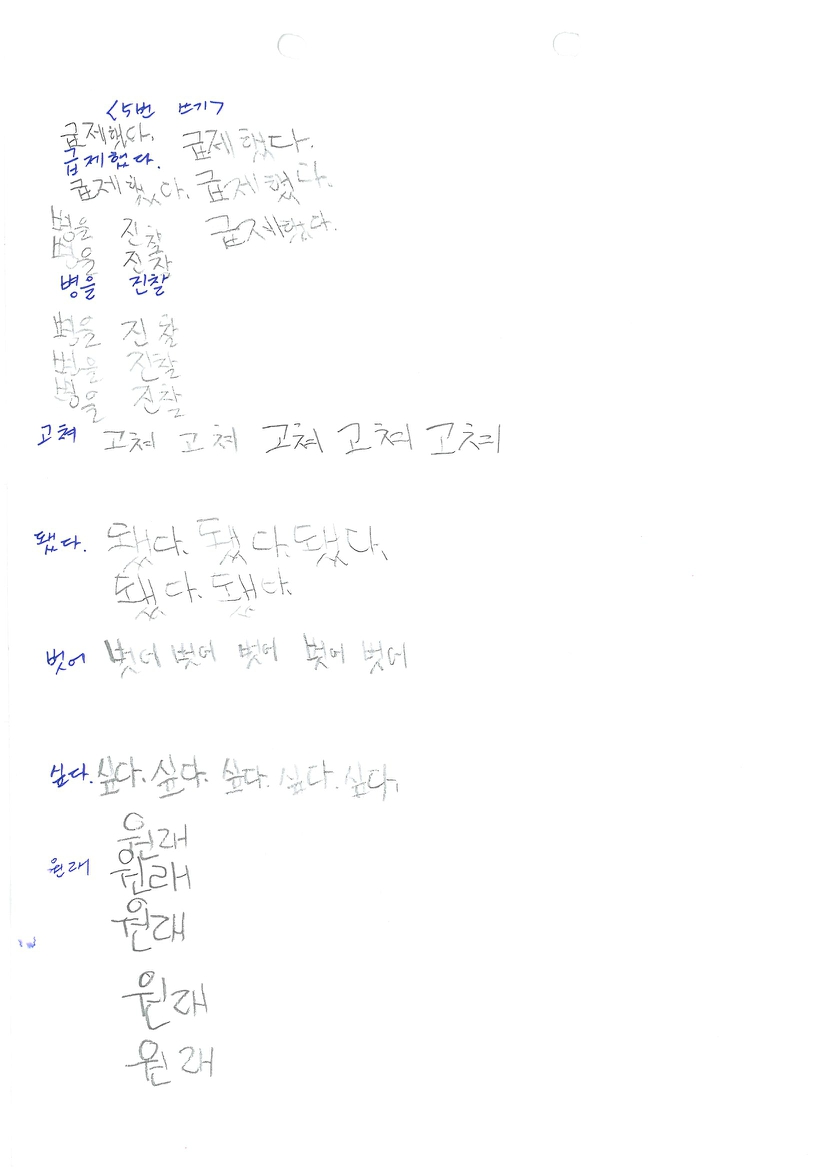 <5번 쓰기>
급제했다. 급제했다.
급제했다.
급제했다. 급제했다.
병을 진찰 급제했다.
병을 진찰
병을 진찰
병을 진찰
병을 진찰
병을 진찰
고쳐 고쳐 고쳐 고쳐 고쳐 고쳐
됐다. 됐다. 됐다. 됐다.
됐다. 됐다.
벗어 벗어 벗어 벗어 벗어 벗어
싶다. 싶다. 싶다. 싶다. 싶다. 싶다.
원래
원래 원래
원래
원래
원래